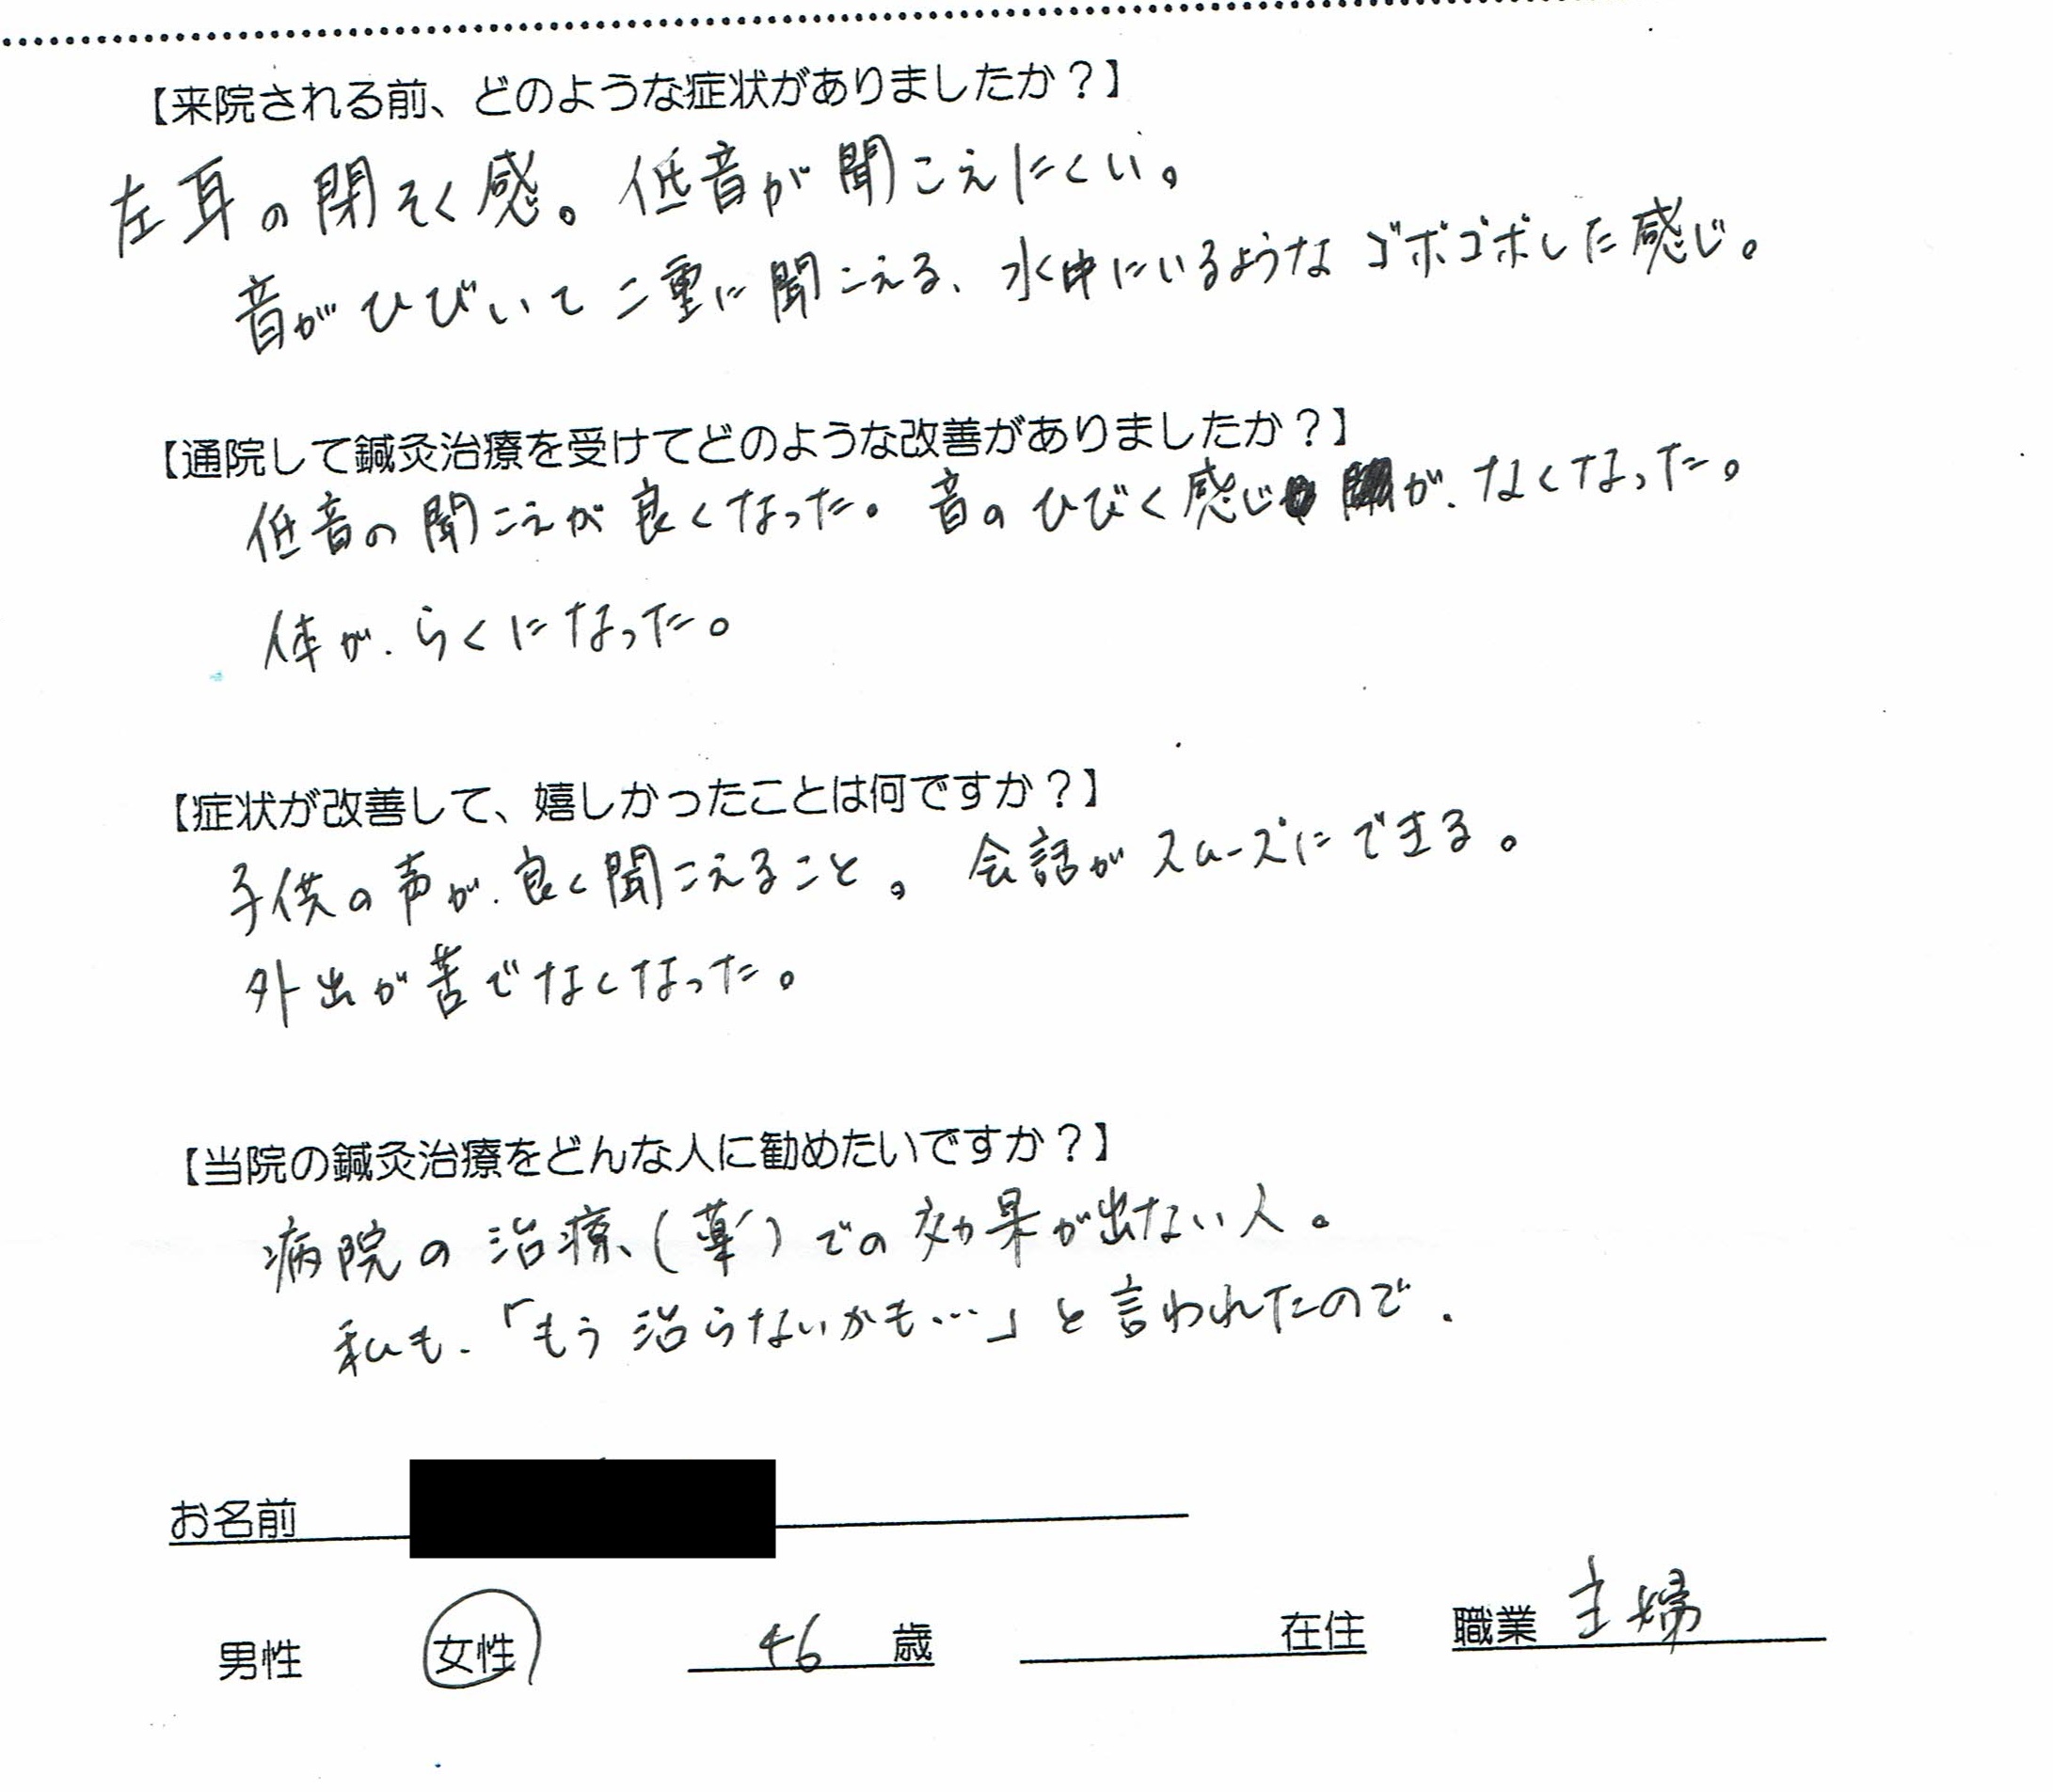 【来院される前、どのような症状がありましたか？】
左耳の閉そく感。低音が聞こえにくい。
音がひびいて二重に聞こえる、水中にいるようなゴボゴボした感じ。
【通院して鍼灸治療を受けてどのような改善がありましたか？】
低音の聞こえが良くなった。音のひびく感じが、なくなった。
体が、らくになった。
【症状が改善して、嬉しかったことは何ですか？】
子供の声が、良く聞こえること。会話がスムーズにできる。
外出が苦でなくなった。
【当院の鍼灸治療をどんな人に勧めたいですか？】
病院の治療、(薬)での効果が出ない人。
私も、「もう治らないかも…」と言われたので、
お名前
男性 女性 46 歳 在住 職業 主婦